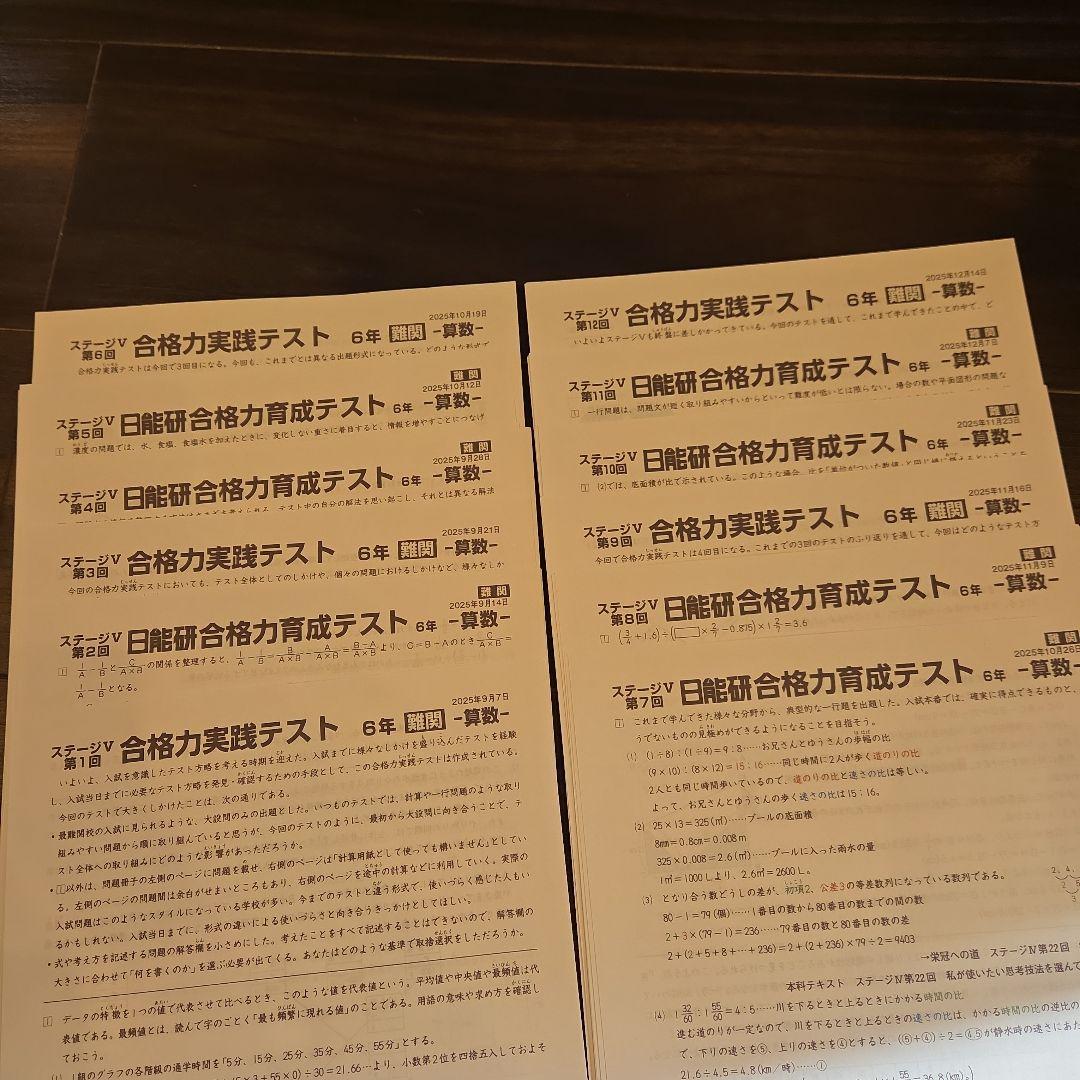 2025年10月19日
ステージⅤ 第6回 合格力実践テスト 6年 難関 -算数-
合格力実践テストは今回で3回目になる。今回も、これまでとは異なる出題形式になっている。どのような形式で
難関
2025年10月12日
ステージⅤ 第5回 日能研合格力育成テスト 6年 -算数-
1 濃度の問題では、水、食塩、食塩水を加えたときに、変化しない重さに着目すると、情報を増やすことにつなげ
難関
2025年9月28日
ステージⅤ 第4回 日能研合格力育成テスト 6年 -算数-
テスト中の自分の解法を思い起こし、それとは異なる解法
2025年9月21日
ステージⅤ 第3回 合格力実践テスト 6年 難関 -算数-
今回の合格力実践テストにおいても、テスト全体としてのしかけや、個々の問題におけるしかけなど、様々なしか
難関
2025年9月14日
ステージⅤ 第2回 日能研合格力育成テスト 6年 -算数-
1 1/A-1/BとC/A×Bの関係を整理すると、1/A-1/B=B/A×B-A/A×B=B-A/A×Bより、C=B-AのときC/A×B=
1/A-1/Bとなる。
2025年9月7日
ステージⅤ 第1回 合格力実践テスト 6年 難関 -算数-
いよいよ、入試を意識したテスト方略を考える時期を迎えた。入試までに様々なしかけを盛り込んだテストを経験
し、入試当日までに必要なテスト方略を発見・確認するための手段として、この合格力実践テストは作成されている。
今回のテストで大きくしかけたことは、次の通りである。
・最難関校の入試に見られるような、大設問のみの出題とした。いつものテストでは、計算や一行問題のような取り
組みやすい問題から順に取り組んでいると思うが、今回のテストのように、最初から大設問に向き合うことで、テ
スト全体への取り組みにどのような影響があっただろうか。
・1以外は、問題冊子の左側のページに問題を載せ、右側のページは「計算用紙として使っても構いません」としてい
る。左側のページの問題間は余白がせまいところもあり、右側のページを途中の計算などに利用していく。実際の
入試問題はこのようなスタイルになっている学校が多い。今までのテストと違う形式で、使いづらく感じた人もい
るかもしれない。入試当日までに、形式の違いによる使いづらさと向き合うきっかけとしてほしい。
・式や考え方を記述する問題の解答欄を小さめにした。考えたことをすべて記述することはできないので、解答欄の
大きさに合わせて「何を書くのか」を選ぶ必要が出てくる。あなたはどのような基準で取捨選択をしただろうか。
1 データの特徴を1つの値で代表させて比べるとき、このような値を代表値という。平均値や中央値や最頻値は代
表値である。最頻値とは、読んで字のごとく「最も頻繁に現れる値」のことである。用語の意味や求め方を確認し
ておこう。
(1) 1組のグラフの各階級の通学時間を「5分、15分、25分、35分、45分、55分」とする。
5×3+55×0)÷30=21.66…より、小数第2位を四捨五入しておよそ
2025年12月14日
ステージⅤ 第12回 合格力実践テスト 6年 難関 -算数-
いよいよステージⅤも終盤に差しかかってきている。今回のテストを通して、これまで学んできたことの中で、ど
難関
2025年12月7日
ステージⅤ 第11回 日能研合格力育成テスト 6年 -算数-
1 一行問題は、問題文が短く取り組みやすいからといって難度が低いとは限らない。場合の数や平面図形の問題な
難関
2025年11月23日
ステージⅤ 第10回 日能研合格力育成テスト 6年 -算数-
1 (2)では、底面積が比で示されている。このような場合、比を「単位がついた数値」と同じ様に
2025年11月16日
ステージⅤ 第9回 合格力実践テスト 6年 難関 -算数-
今回で合格力実践テストは4回目になる。これまでの3回のテストのふり返りを通して、今回はどのようなテスト方
難関
2025年11月9日
ステージⅤ 第8回 日能研合格力育成テスト 6年 -算数-
1 (3/4+1.6)÷(□×2/7-0.875)×1 2/7=3.6
難関
2025年10月26日
ステージⅤ 第7回 日能研合格力育成テスト 6年 -算数-
1 これまで学んできた様々な分野から、典型的な一行題を出題した。入試本番では、確実に得点できるものと、
うでないものの見極めができるようになることを目指そう。
(1) (1÷8):(1÷9)=9:8……お兄さんとゆうさんの歩幅の比
(9×10):(8×12)=15:16……同じ時間に2人が歩く道のりの比
2人とも同じ時間歩いているので、道のりの比と速さの比は等しい。
よって、お兄さんとゆうさんの歩く速さの比は15:16。
(2) 25×13=325(㎡)……プールの底面積
8mm=0.8cm=0.008m
325×0.008=2.6(㎥)……プールに入った雨水の量
1㎥=1000Lより、2.6㎥=2600L。
(3) となり合う数どうしの差が、初項2、公差3の等差数列になっている数列である。
80-1=79(個)……1番目の数から80番目の数までの間の数
2+3×(79-1)=236……79番目の数と80番目の数の差
2+(2+5+8+…+236)=2+(2+236)×79÷2=9403
→栄冠への道 ステージⅣ第22回
本科テキスト ステージⅣ第22回 私が使いたい思考技法を選んで
(4) 1 32/60:1 55/60=4:5……川を下るときと上るときにかかる時間の比
進む道のりが一定なので、川を下るときと上るときの速さの比は、かかる時間の比の逆比の
で、下りの速さを⑤、上りの速さを④とすると、(⑤+④)÷2=④.⑤が静水時の速さにあた
21.6÷4.5=4.8(km/時)……①